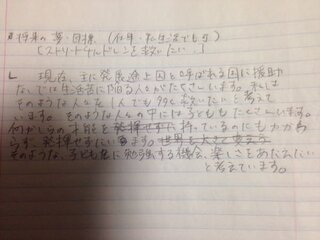 将来の夢・目標 (仕事・私生活でも可)
[ストリートチルドレンを救いたい。]
現在、主に発展途上国と呼ばれる国に援助
なしでは生活苦に陥る人々がたくさんいます。私は
そのような人々を1人でも多く救いたいと考えて
います。そのような人々の中には子どももたくさんいます。
何かしらの才能を発揮せずに持っているのにもかかわ
らず、発揮せずにいます。世界を大きく変える
そのような、子ども達に勉強する機会、楽しさをあたえたい
と考えています。